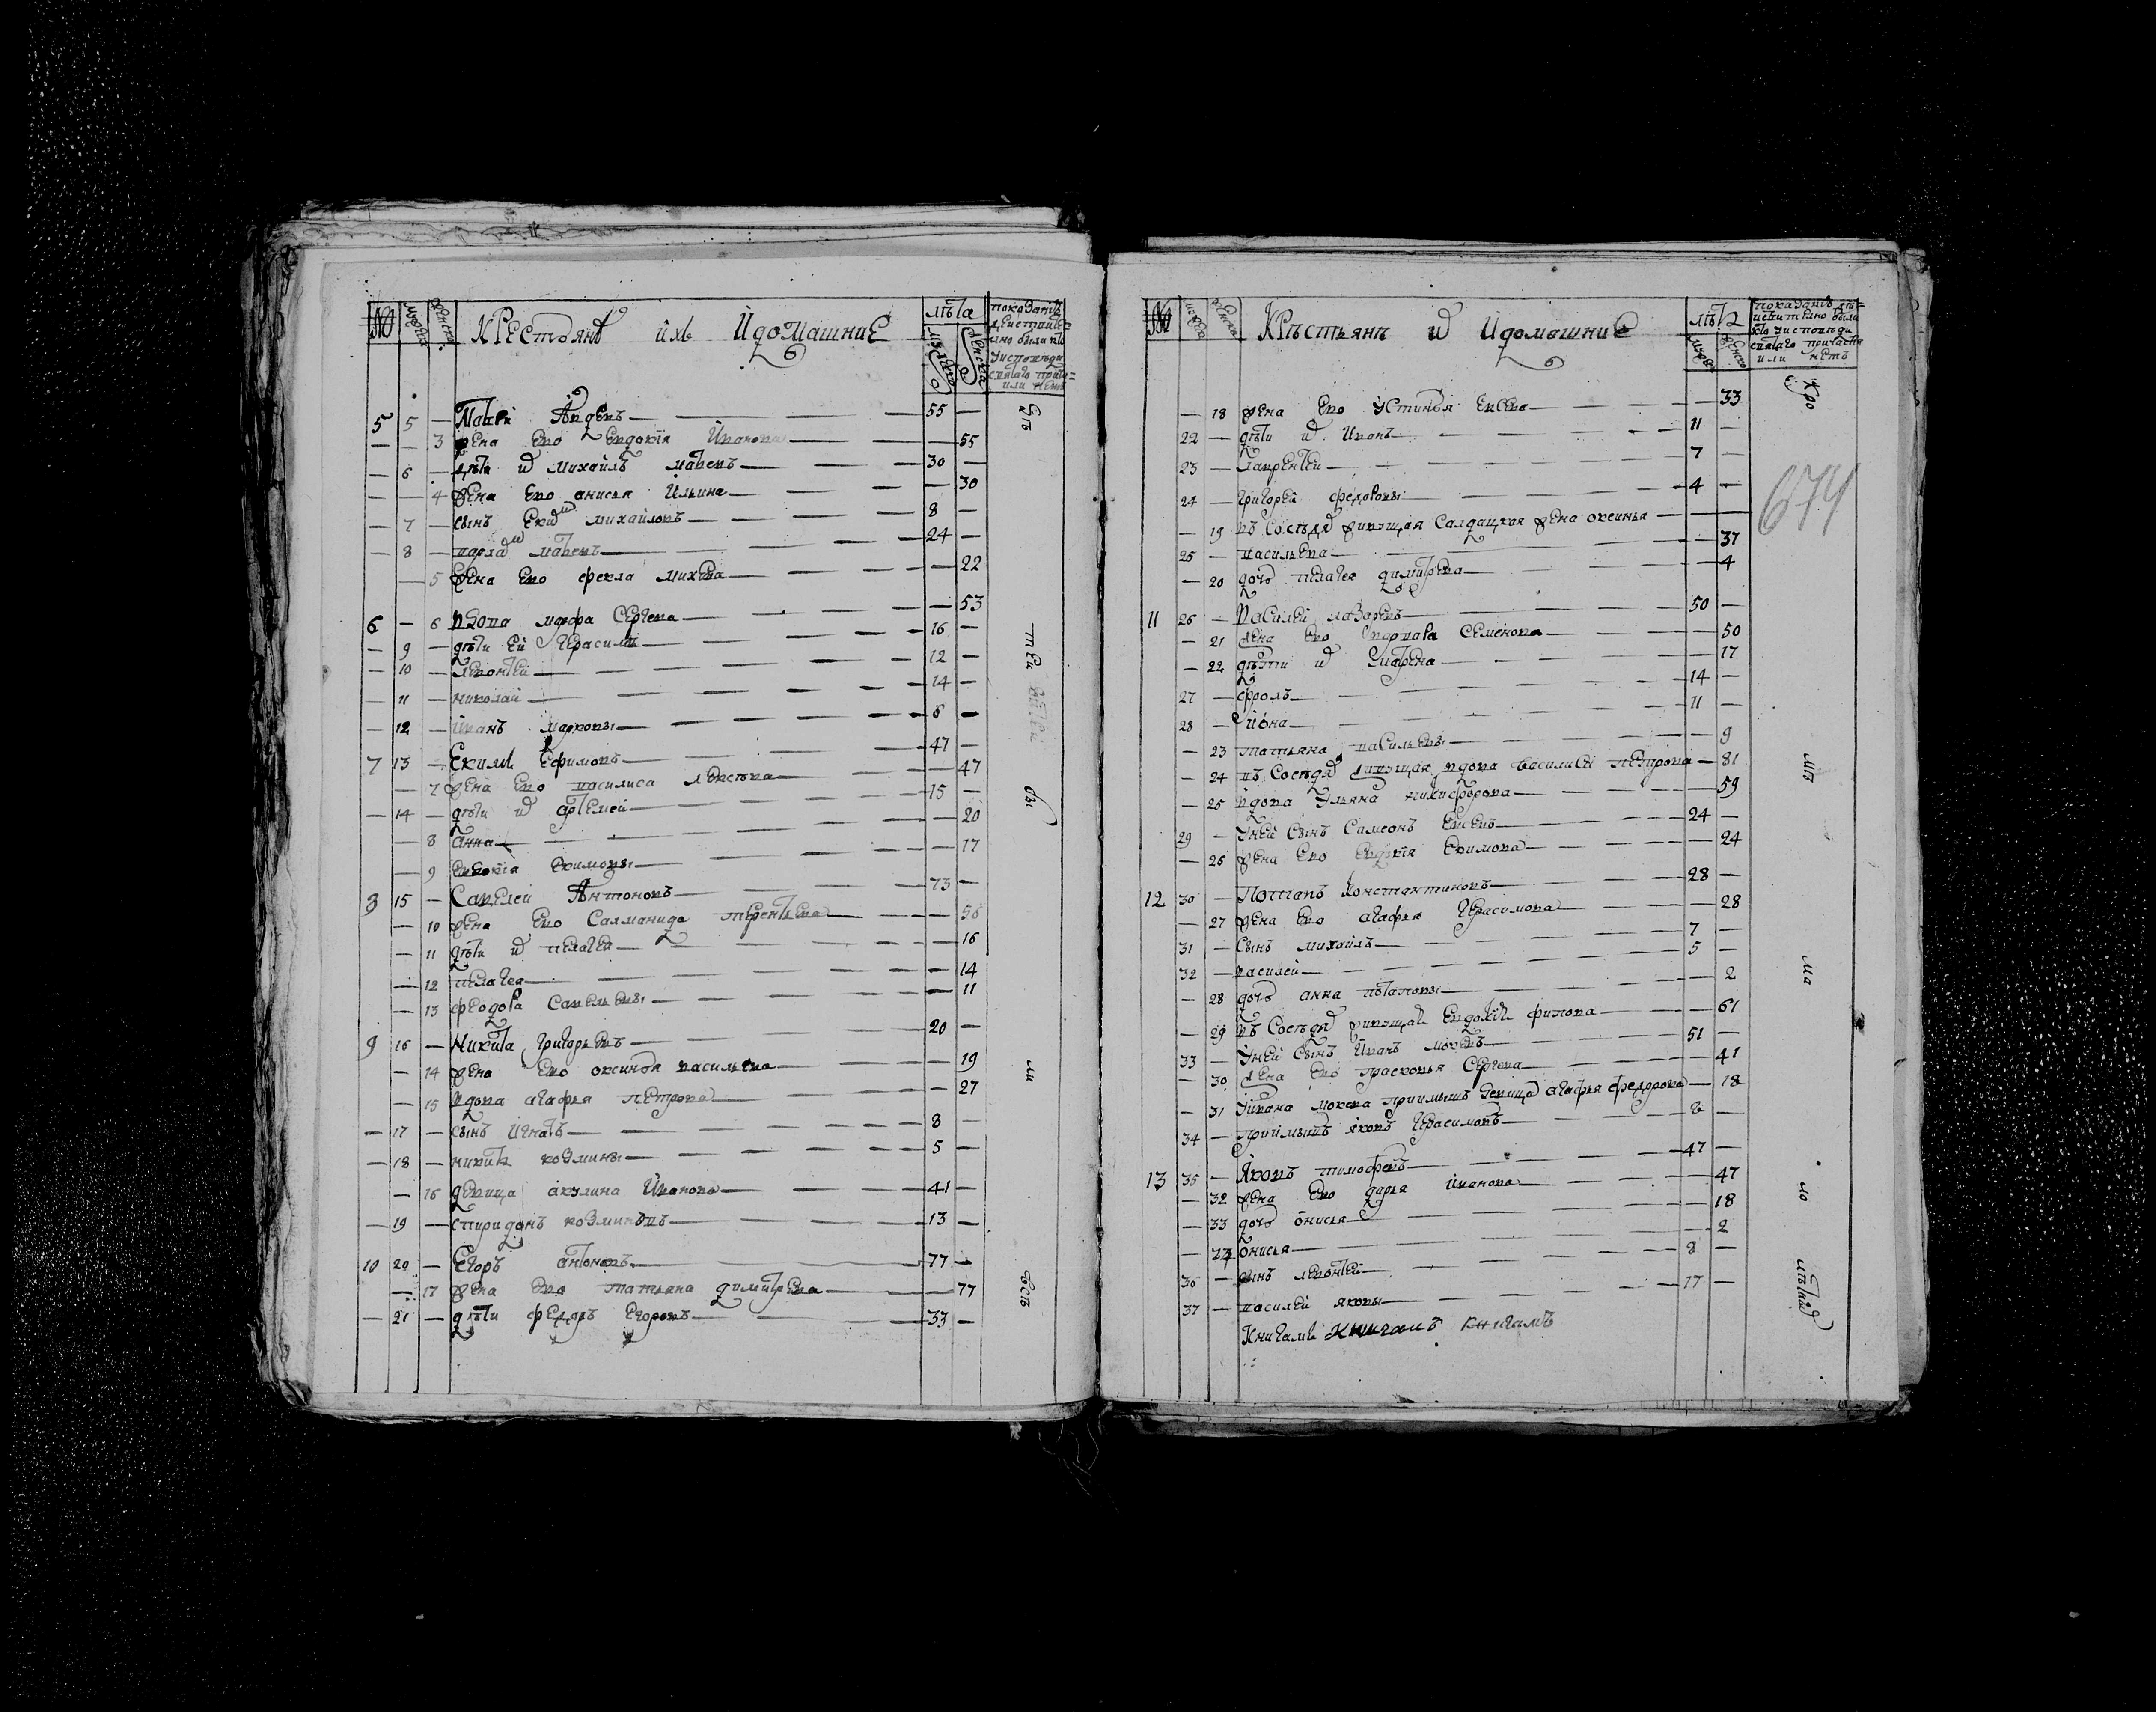 № мужска женска Крестьянъ ихъ и домашние лѣта мужска женска показанїе действително были кто у исповеди святаго прича= или нетъ
5 5 — Матвѣй Авдеевъ — 55 —
— — 3 жена ево Евдокїя Иванова — 55
— 6 — дѣти их Михайлъ Матвеевъ — 30 —
— — 4 жена ево Анисья Ильина — 30
— 7 — сынъ Еким Михайловъ — 8 —
— 8 — Матвеевъ — 24 —
— 5 жена ево Фекла Михеева — 22
6 — 6 вдова Марфа Сергеева — 53
— 9 — дѣти ей Герасимъ — 16 —
— 10 — Левонтей — 12 —
— 11 — Николай — 14 —
— 12 — Иванъ Марковы — 8 —
7 13 — Екимъ Ефимовъ — 47 —
— 7 жена ево Василиса Алексеева — 47
— 14 — дѣти их Артемей — 15 —
— 8 Анна — 20
— 9 Евдокїя Екимовы — 17
8 15 — Савелей Антоновъ — 73 —
— 10 жена ево Саламанида Терентьева — 56
— 11 дѣти их Пелагеи — 16
— 12 Пелагея — 14
— 13 Феодора Савельевы — 11
9 16 — Никита Григорьевъ — 20 —
— 14 жена ево Оксинья Васильева — 19
— 15 вдова Агафья Петрова — 27
— 17 — сынъ Игнатъ — 8 —
— 18 — Никита Козмины — 5 —
— 16 девица Акулина Иванова — 41 —
— 19 — Спиридонъ Козминъ — 13 —
10 20 — Егоръ Антоновъ — 77 —
— 17 жена ево Татьяна Димитрева — 77
— 21 — дѣти Федоръ Егоровъ — 33 —
тей
бы
ли
№ мужска женска Крестьянъ их и домашние лѣта мужска женска показанїе действително были кто у исповеди святаго причастїя или нетъ
— 18 жена ево Устинья Евсева — 33
22 — дѣти их Иванъ — 11 —
23 — Лаврентей — 7 —
24 — Григорей Федоровы — 4 —
— 19 въ соседях живущая салдацкая жена Оксинья —
25 — Васильева — 37
— 20 дочь Пелагея Димитрева — 4
11 26 — Василей Лазаревъ — 50 —
— 21 жена ево Варвара Семенова — 50
— 22 дѣти их Матрена — 17
27 — Фролъ — 14 —
28 — Иона — 11 —
— 23 Татьяна Васильевы — 9
— 24 въ соседях живущая вдова Василисей Петрова — 81
— 25 вдова Ульяна Никифорова — 59
29 — у ней сынъ Симеонъ — 24 —
— 26 жена ево Евдокїя Екимова — 24
12 30 — Потапъ Константиновъ — 28 —
— 27 жена ево Агафья Герасимова — 28
31 — сынъ Михайлъ — 7 —
32 — Василей — 5 —
— 28 дочь Анна Потаповы — 2
— 29 въ соседях живущая Евдокїя Филова — 61
33 — у ней сынъ Иванъ Мокеевъ — 51 —
— 30 жена ево Прасковья Сергеева — 41
— 31 у Ивана Мокева приимышъ девица Агафья Федорова — 18
34 — приимышъ Яковъ Герасимовъ — 2 —
13 35 — Яковъ Тимофеевъ — 47 —
— 32 жена ево Дарья Иванова — 47
— 33 дочь Онисья — 18
— 34 Онисья — 2
36 — сынъ Левонтей — 8 —
37 — Василей Яковы — 17 —
Книгамъ книгамъ книгамъ
Кро
674
мѣ
ма
ло
лѣтных